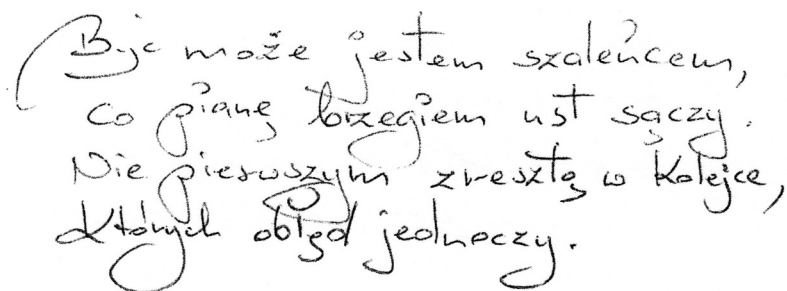 Być może jestem szaleńcem,
co pianę brzegiem ust sączy.
Nie pierwszym zresztą w kolejce,
których obłęd jednoczy.